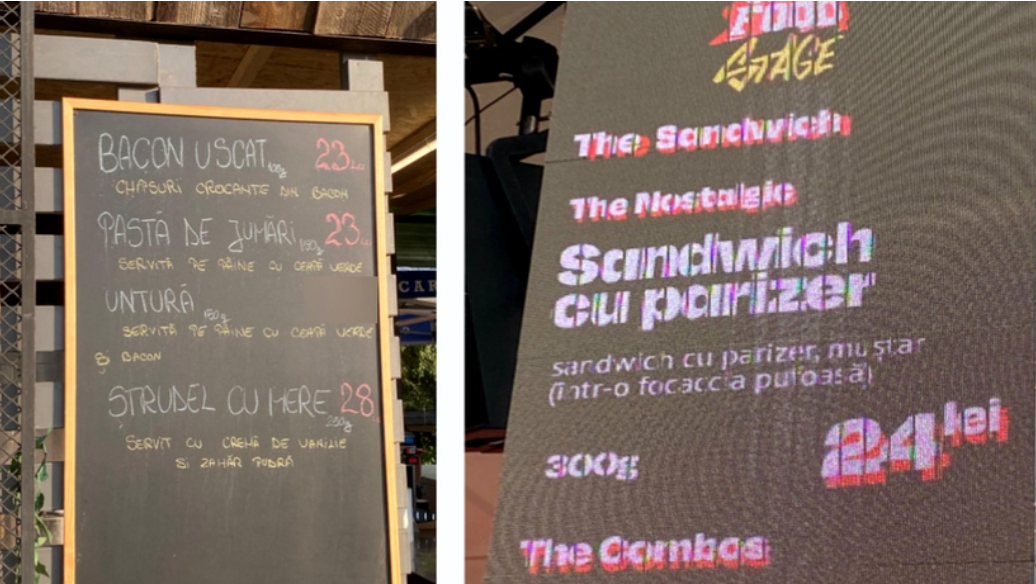 BACON USCAT 100g 23 Lei
CHIPSURI CROCANTE DIN BACON
PASTĂ DE JUMĂRI 150g 23 Lei
SERVITĂ PE PÂINE CU CEAPĂ VERDE
UNTURĂ 150g
SERVITĂ PE PÂINE CU CEAPĂ VERDE
ȘI BACON
ȘTRUDEL CU MERE 250g 28
SERVIT CU CREMĂ DE VANILIE
SI ZAHĂR PUDRĂ
CAR
FOOD
STAGE
The Sandwich
The Nostalgic
Sandwich
cu parizer
sandwich cu parizer, muștar
(într-o focaccia pufoasă)
300g
24 lei
The Combos